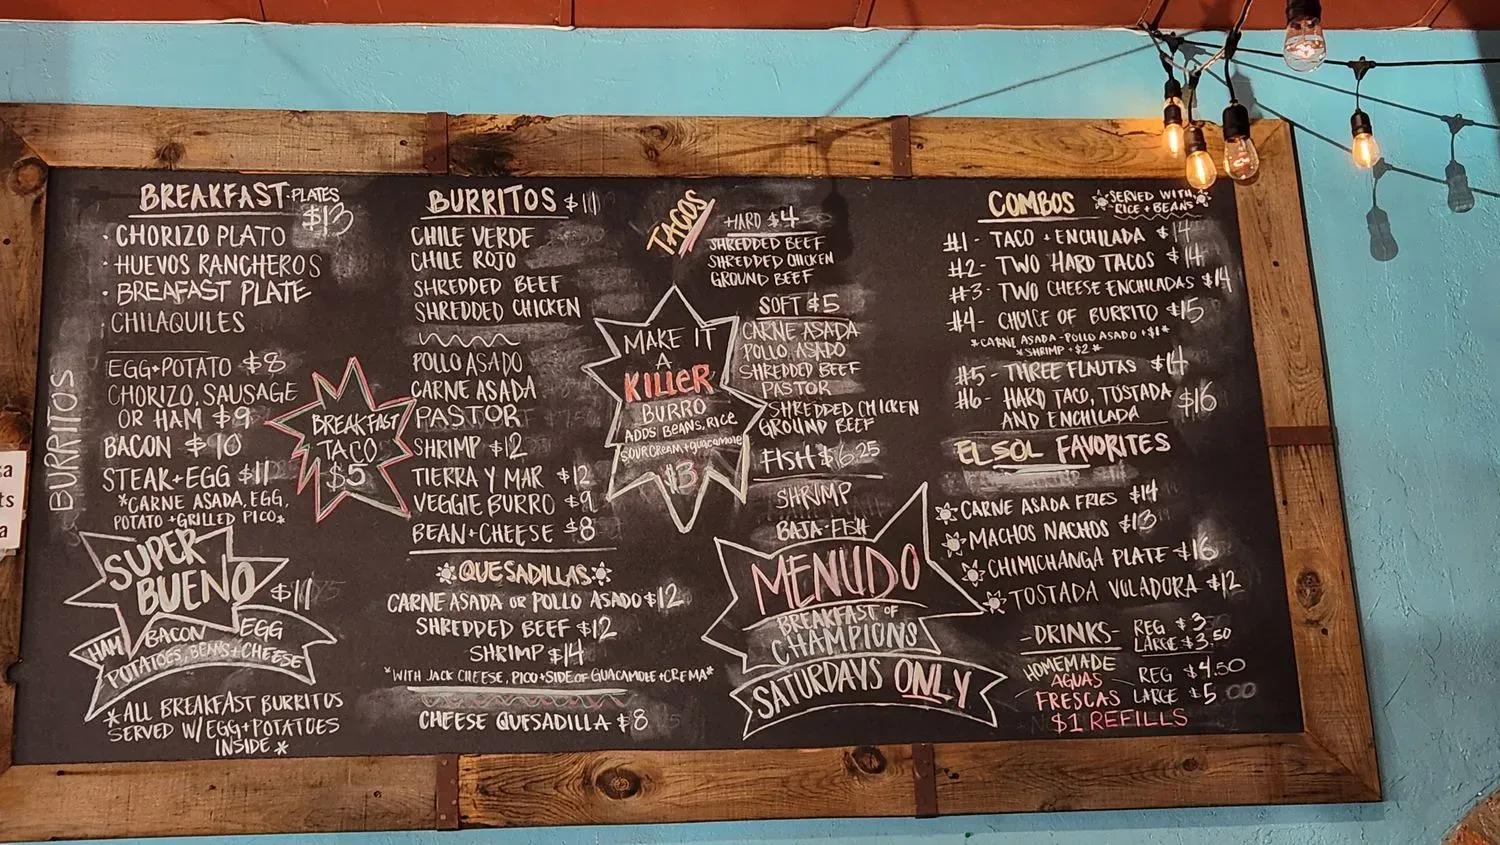 BREAKFAST PLATES
$13
· CHORIZO PLATO
· HUEVOS RANCHEROS
· BREAFAST PLATE
CHILAQUILES
BURRITOS
EGG+POTATO $8
CHORIZO, SAUSAGE
OR HAM $9
BACON $10
STEAK+EGG $11
*CARNE ASADA, EGG,
POTATO + GRILLED PICO*
BREAKFAST
TACO
$5
SUPER
BUENO
$11
HAM BACON EGG
POTATOES, BEANS+CHEESE
*ALL BREAKFAST BURRITOS
SERVED W/ EGG+POTATOES
INSIDE*
BURRITOS $11
CHILE VERDE
CHILE ROJO
SHREDDED BEEF
SHREDDED CHICKEN
POLLO ASADO
CARNE ASADA
PASTOR
SHRIMP $12
TIERRA Y MAR $12
VEGGIE BURRO $9
BEAN+CHEESE $8
QUESADILLAS
CARNE ASADA OR POLLO ASADO $12
SHREDDED BEEF $12
SHRIMP $14
*WITH JACK CHEESE, PICO+SIDE OF GUACAMOLE+CREMA*
CHEESE QUESADILLA $8
MAKE IT
A
KILLER
BURRO
ADDS BEANS, RICE
SOUR CREAM+guacamole
$3
TACOS
HARD $4
SHREDDED BEEF
SHREDDED CHICKEN
GROUND BEEF
SOFT $5
CARNE ASADA
POLLO ASADO
SHREDDED BEEF
PASTOR
SHREDDED CHICKEN
GROUND BEEF
FISH $6.25
SHRIMP
BAJA-FISH
MENUDO
BREAKFAST OF
CHAMPIONS
SATURDAYS ONLY
COMBOS
SERVED WITH
RICE + BEANS
#1 - TACO + ENCHILADA $14
#2 - TWO HARD TACOS $14
#3 - TWO CHEESE ENCHILADAS $14
#4 - CHOICE OF BURRITO $15
*CARNE ASADA-POLLO ASADO +$1*
*SHRIMP +$2*
#5 - THREE FLAUTAS $14
#6 - HARD TACO, TOSTADA
AND ENCHILADA $16
EL SOL FAVORITES
CARNE ASADA FRIES $14
MACHOS NACHOS $13
CHIMICHANGA PLATE $16
TOSTADA VOLADORA $12
-DRINKS-
REG $3
LARGE $3.50
HOMEMADE
AGUAS
FRESCAS
REG $4.50
LARGE $5
$1 REFILLS
a
ts
a